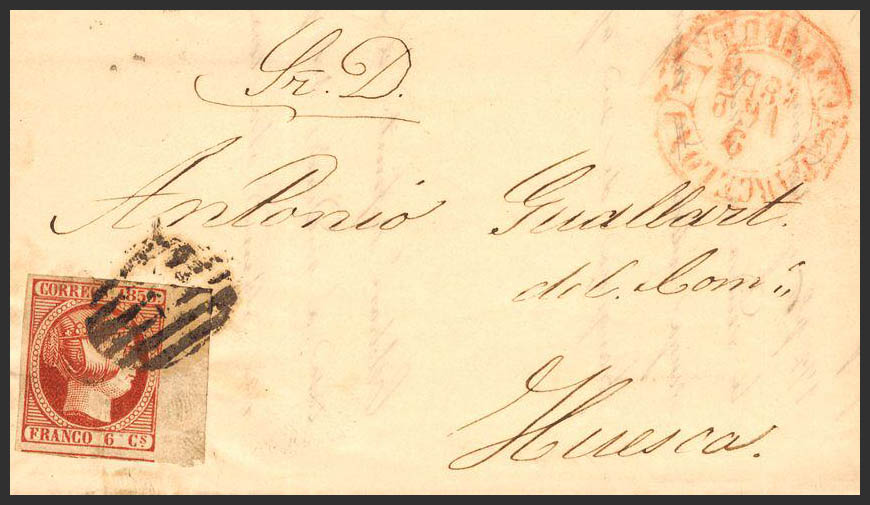 Sr. D.
Antonio Guallart.
del Comº
Huesca.
CORREOS 185
FRANCO 6 Cs